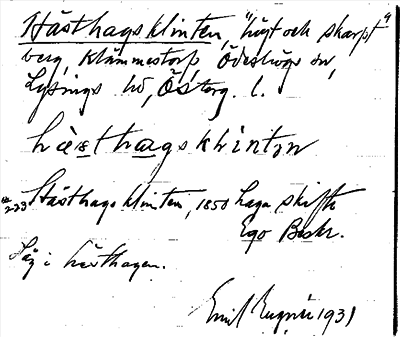 Hästhagsklinten, "högt och skarpt"
berg, Klämmestorp, Ödeshögs sn,
Lysings hd, Österg. l.
hàsthagsklintən
Hästhagsklinten, 1850 Laga skifte
Ego Beskr.
Låg i hästhagen.
Emil 1931